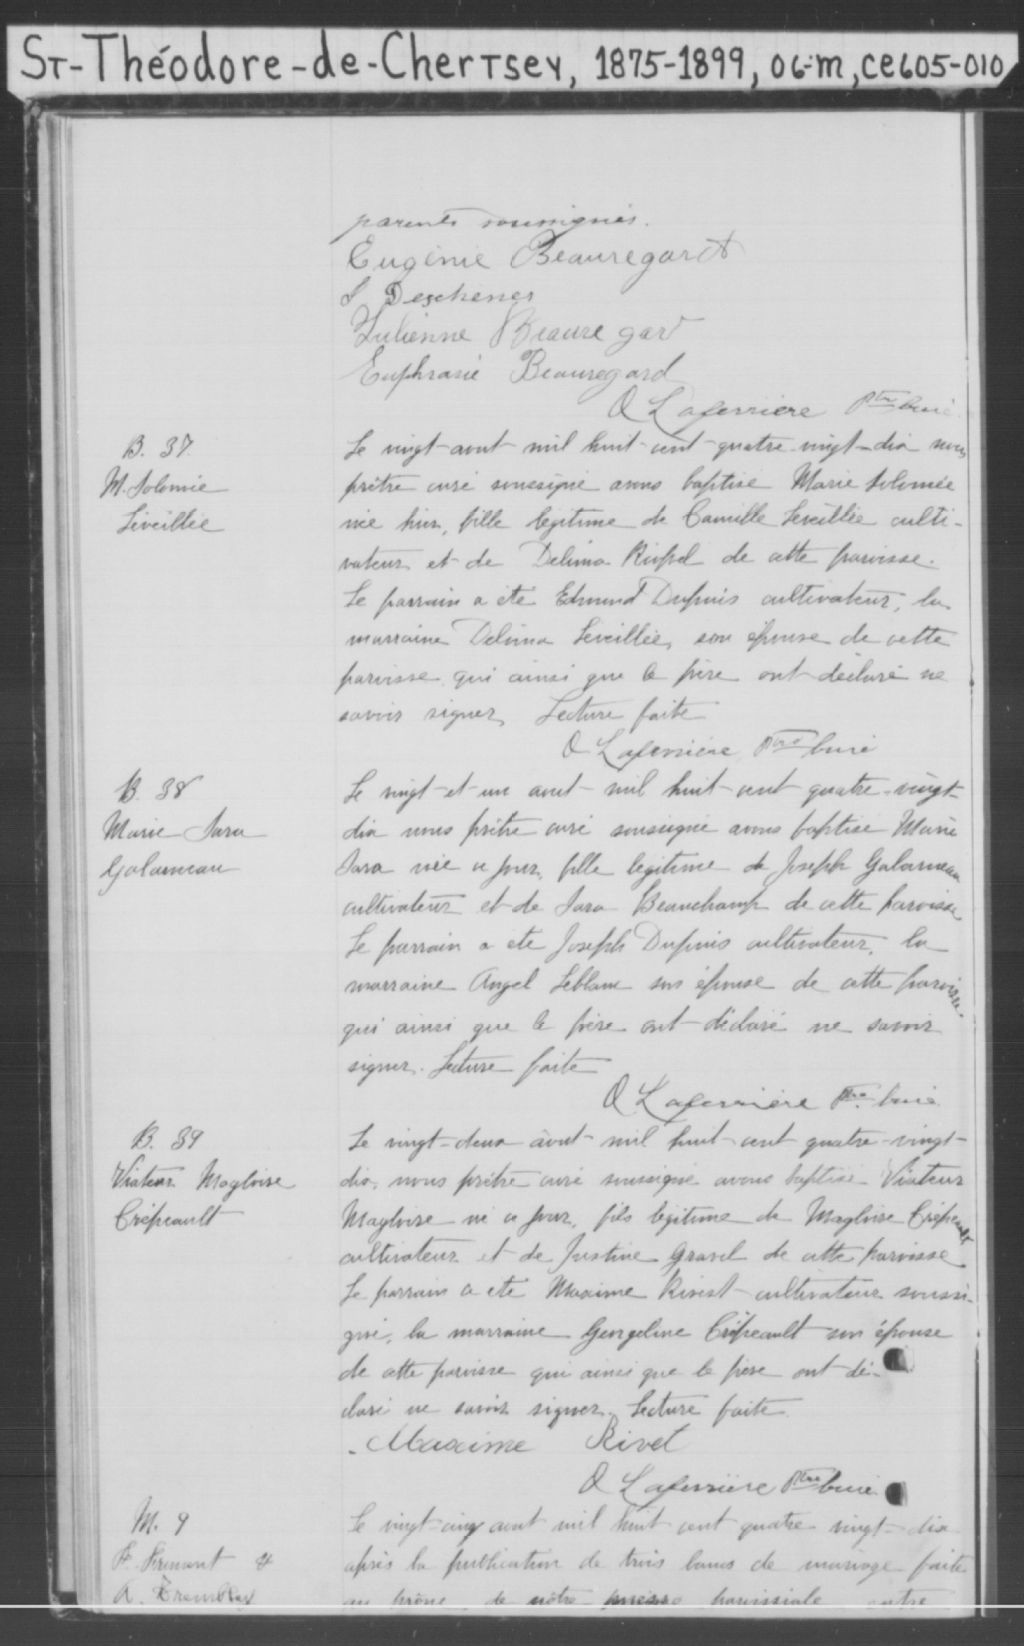 ST-Théodore-de-Chertsey, 1875-1899, 06-m, CE605-010
parents soussignés.
Eugénie Beauregard
Deschenes
Julienne Beauregard
Euphrasie Beauregard
O Laferriere Ptre Curé
B. 37
M. Solomée
Léveillée
Le vingt août mil huit cent quatre-vingt-dix nous
prêtre curé soussigné avons baptisé Marie Solomée
née hier, fille légitime de Camille Léveillée culti-
vateur et de Delima de cette paroisse.
Le parrain a été Edmond Dupuis cultivateur, la
marraine Delima Léveillée, son épouse de cette
paroisse qui ainsi que le père ont déclaré ne
savoir signer. Lecture faite
O Laferrière Ptre Curé
B. 38
Marie Sara
Galarneau
Le vingt-et-un août mil huit cent quatre-vingt-
dix nous prêtre curé soussigné avons baptisé Marie
Sara née ce jour, fille légitime de Joseph Galarneau
cultivateur et de Sara Beauchamp de cette paroisse
Le parrain a été Joseph Dupuis cultivateur, la
marraine Angel Leblanc son épouse de cette paroisse
qui ainsi que le père ont déclaré ne savoir
signer. Lecture faite
O Laferrière Ptre Curé
B. 39
Viateur Magloire
Crépeault
Le vingt-deux août mil huit cent quatre-vingt-
dix, nous prêtre curé soussigné avons baptisé Viateur
Magloire né ce jour, fils légitime de Magloire Crépeault
cultivateur et de Justine Gravel de cette paroisse
Le parrain a été Maxime Rivest cultivateur soussi-
gné, la marraine Georgeline Crépeault son épouse
de cette paroisse qui ainsi que le père ont dé-
claré ne savoir signer. Lecture faite
Maxime Rivet
O Laferrière Ptre Curé
M. 9
&
A. Tremblay
Le vingt-cinq août mil huit cent quatre-vingt-dix
après la publication de trois bancs de mariage faite
au prône de nôtre messe paroissiale entre